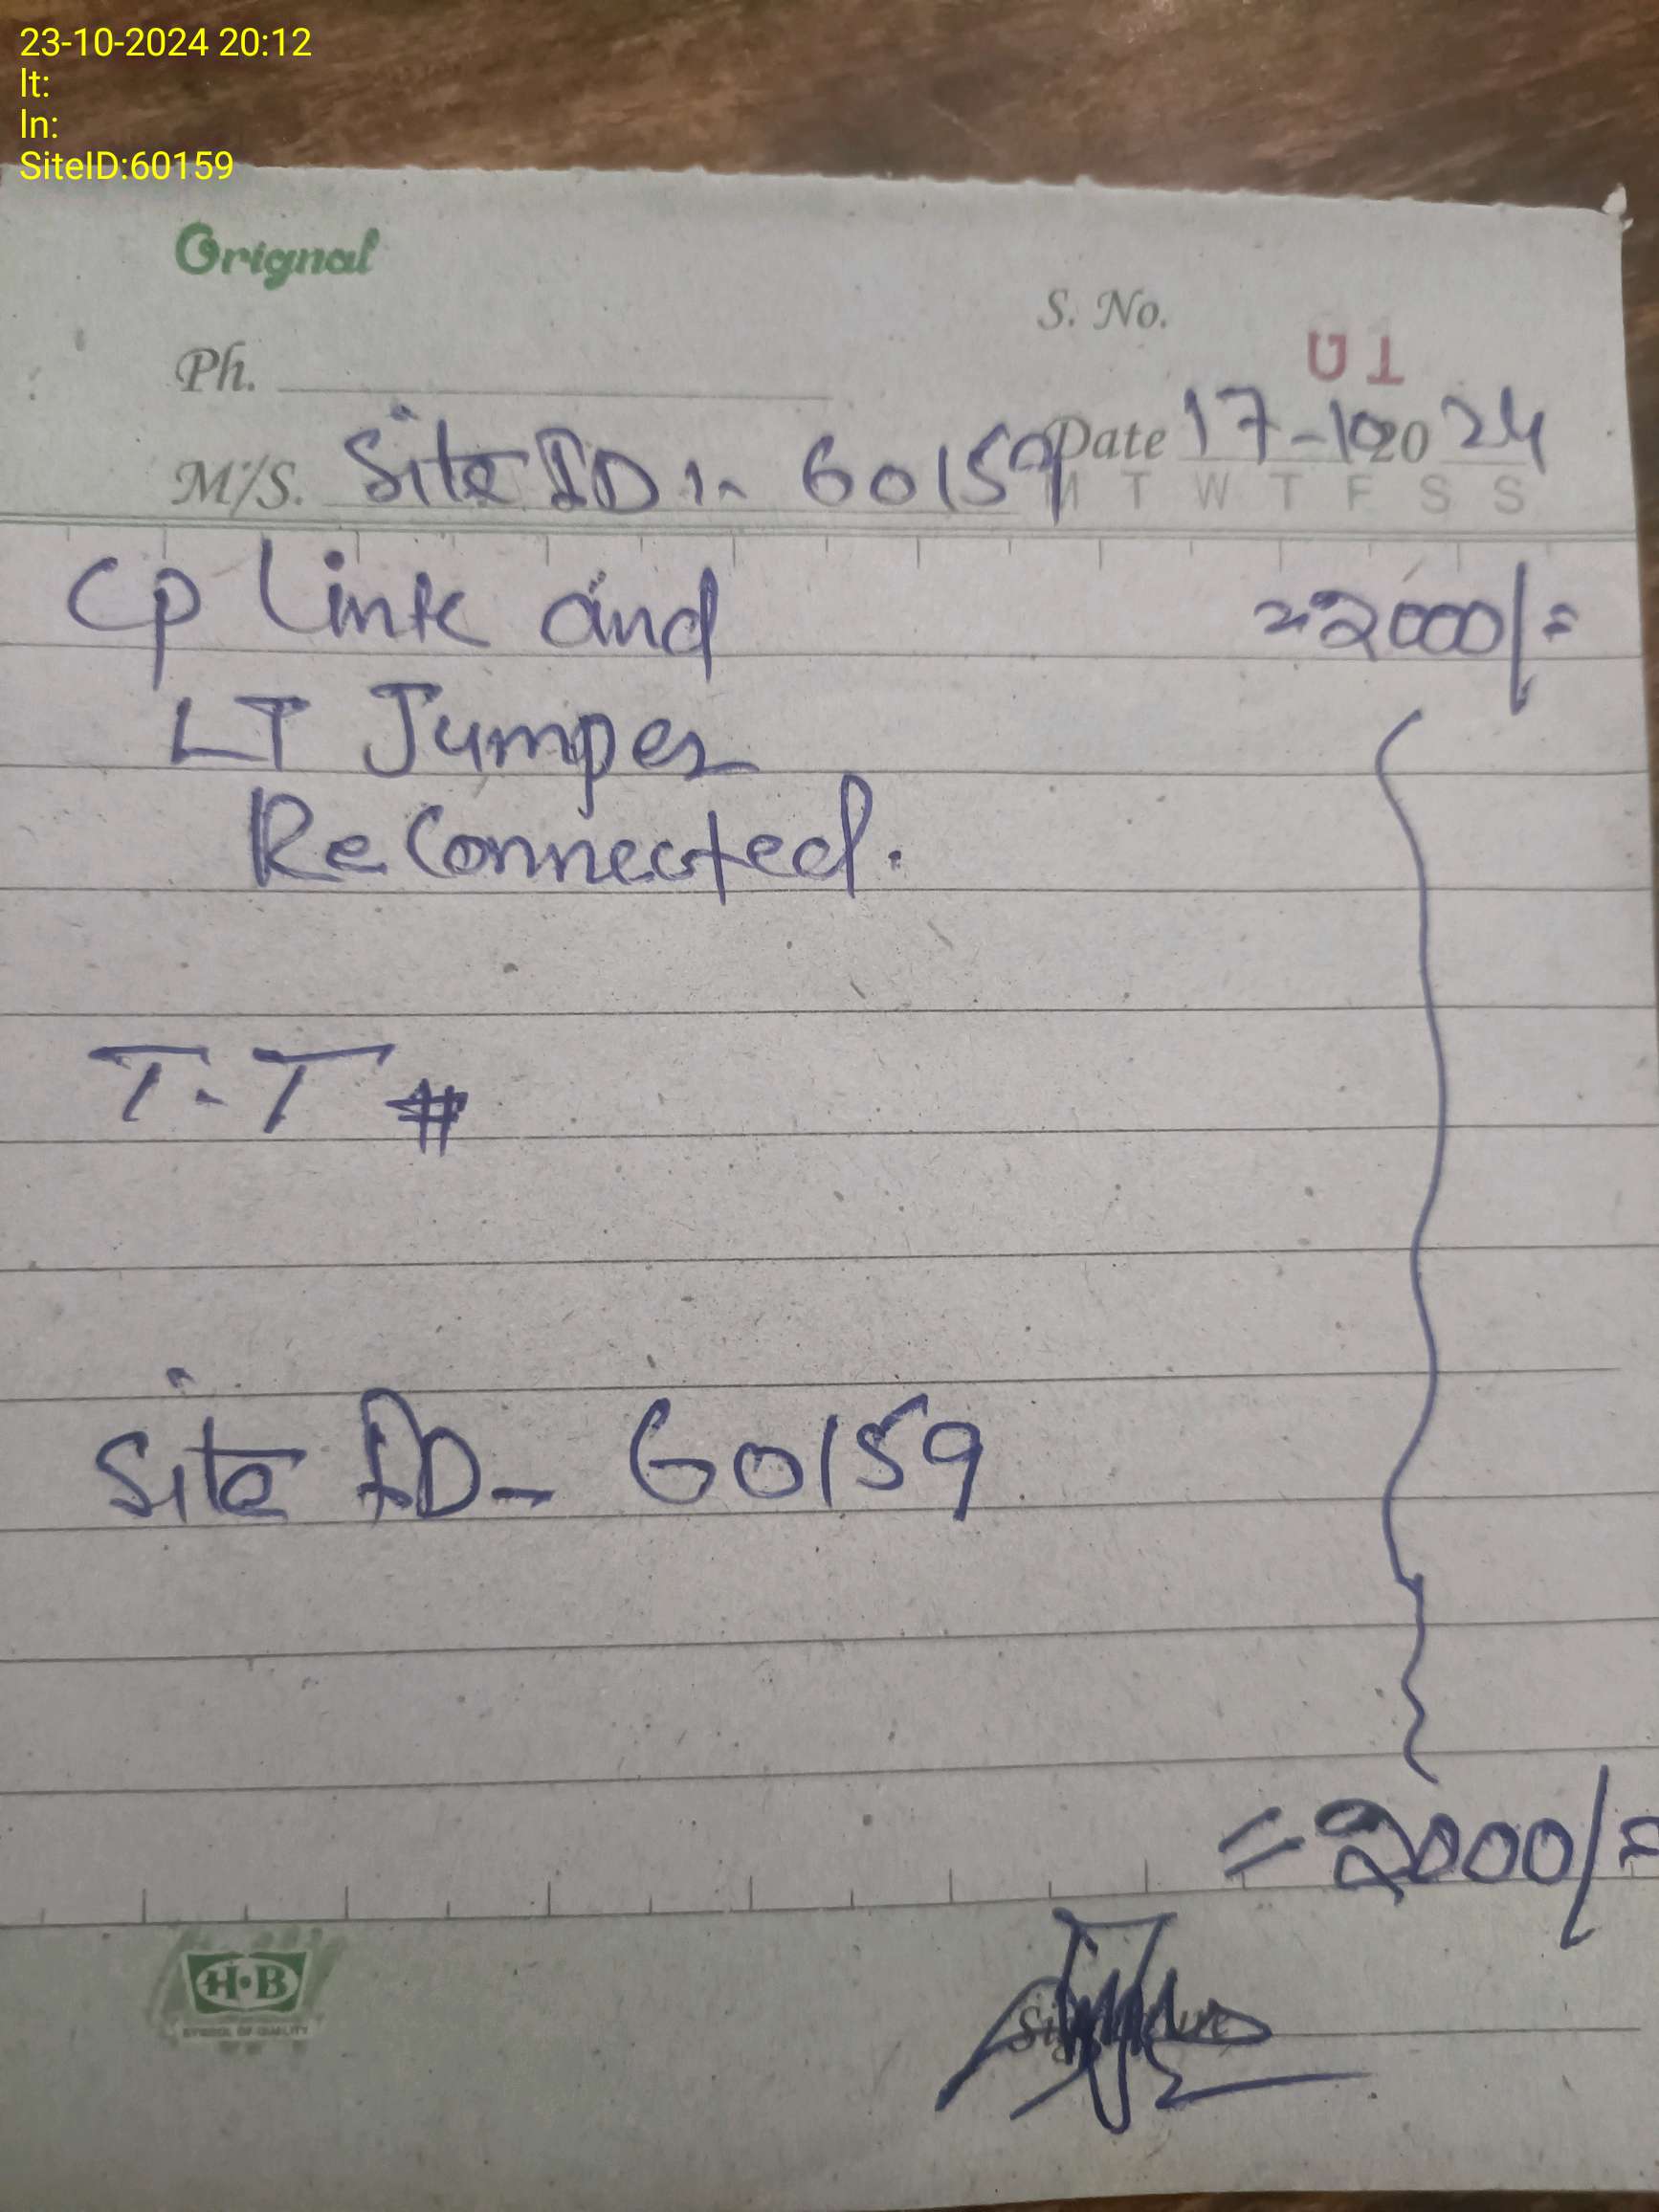 23-10-2024 20:12
lt:
ln:
SiteID:60159
Orignal
S. No.
01
Ph.
Date 17-10 20 24
M/S. Site ID :- 60159
M T W T F S S
Cp Link and =2000/=
LT Jumper
ReConnected.
T.T #
Site ID - 60159
=2000/=
H·B
SYMBOL OF QUALITY
Signature